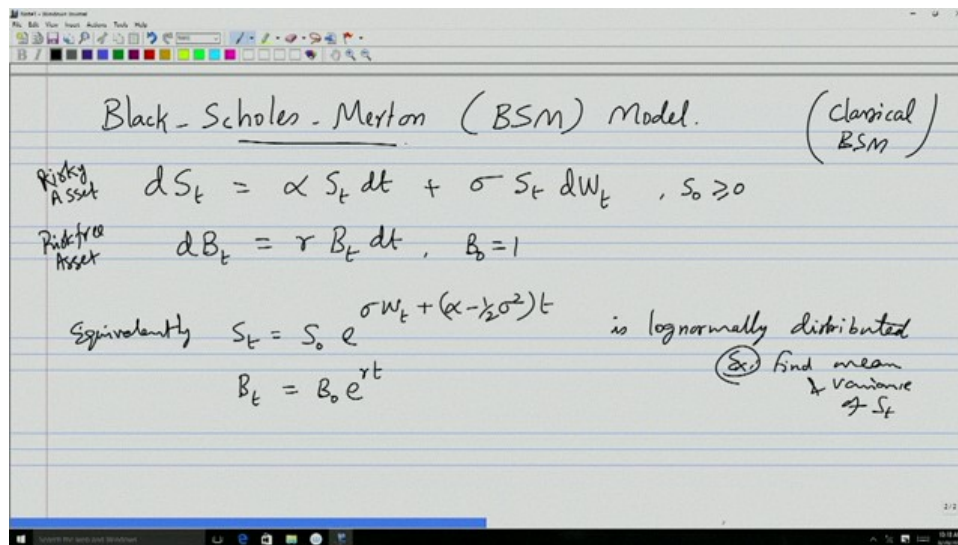 File Edit View Insert Actions Tools Help
B I
Black-Scholes-Merton (BSM) Model.
(Classical BSM)
Risky Asset dS_t = α S_t dt + σ S_t dW_t , S_0 ≥ 0
Riskfree Asset dB_t = r B_t dt , B_0 = 1
Equivalently S_t = S_0 e^{σW_t + (α - ½σ²)t} is lognormally distributed
B_t = B_0 e^{rt}
Ex: Find mean
& variance
of S_t
2/2
Search the web and Windows